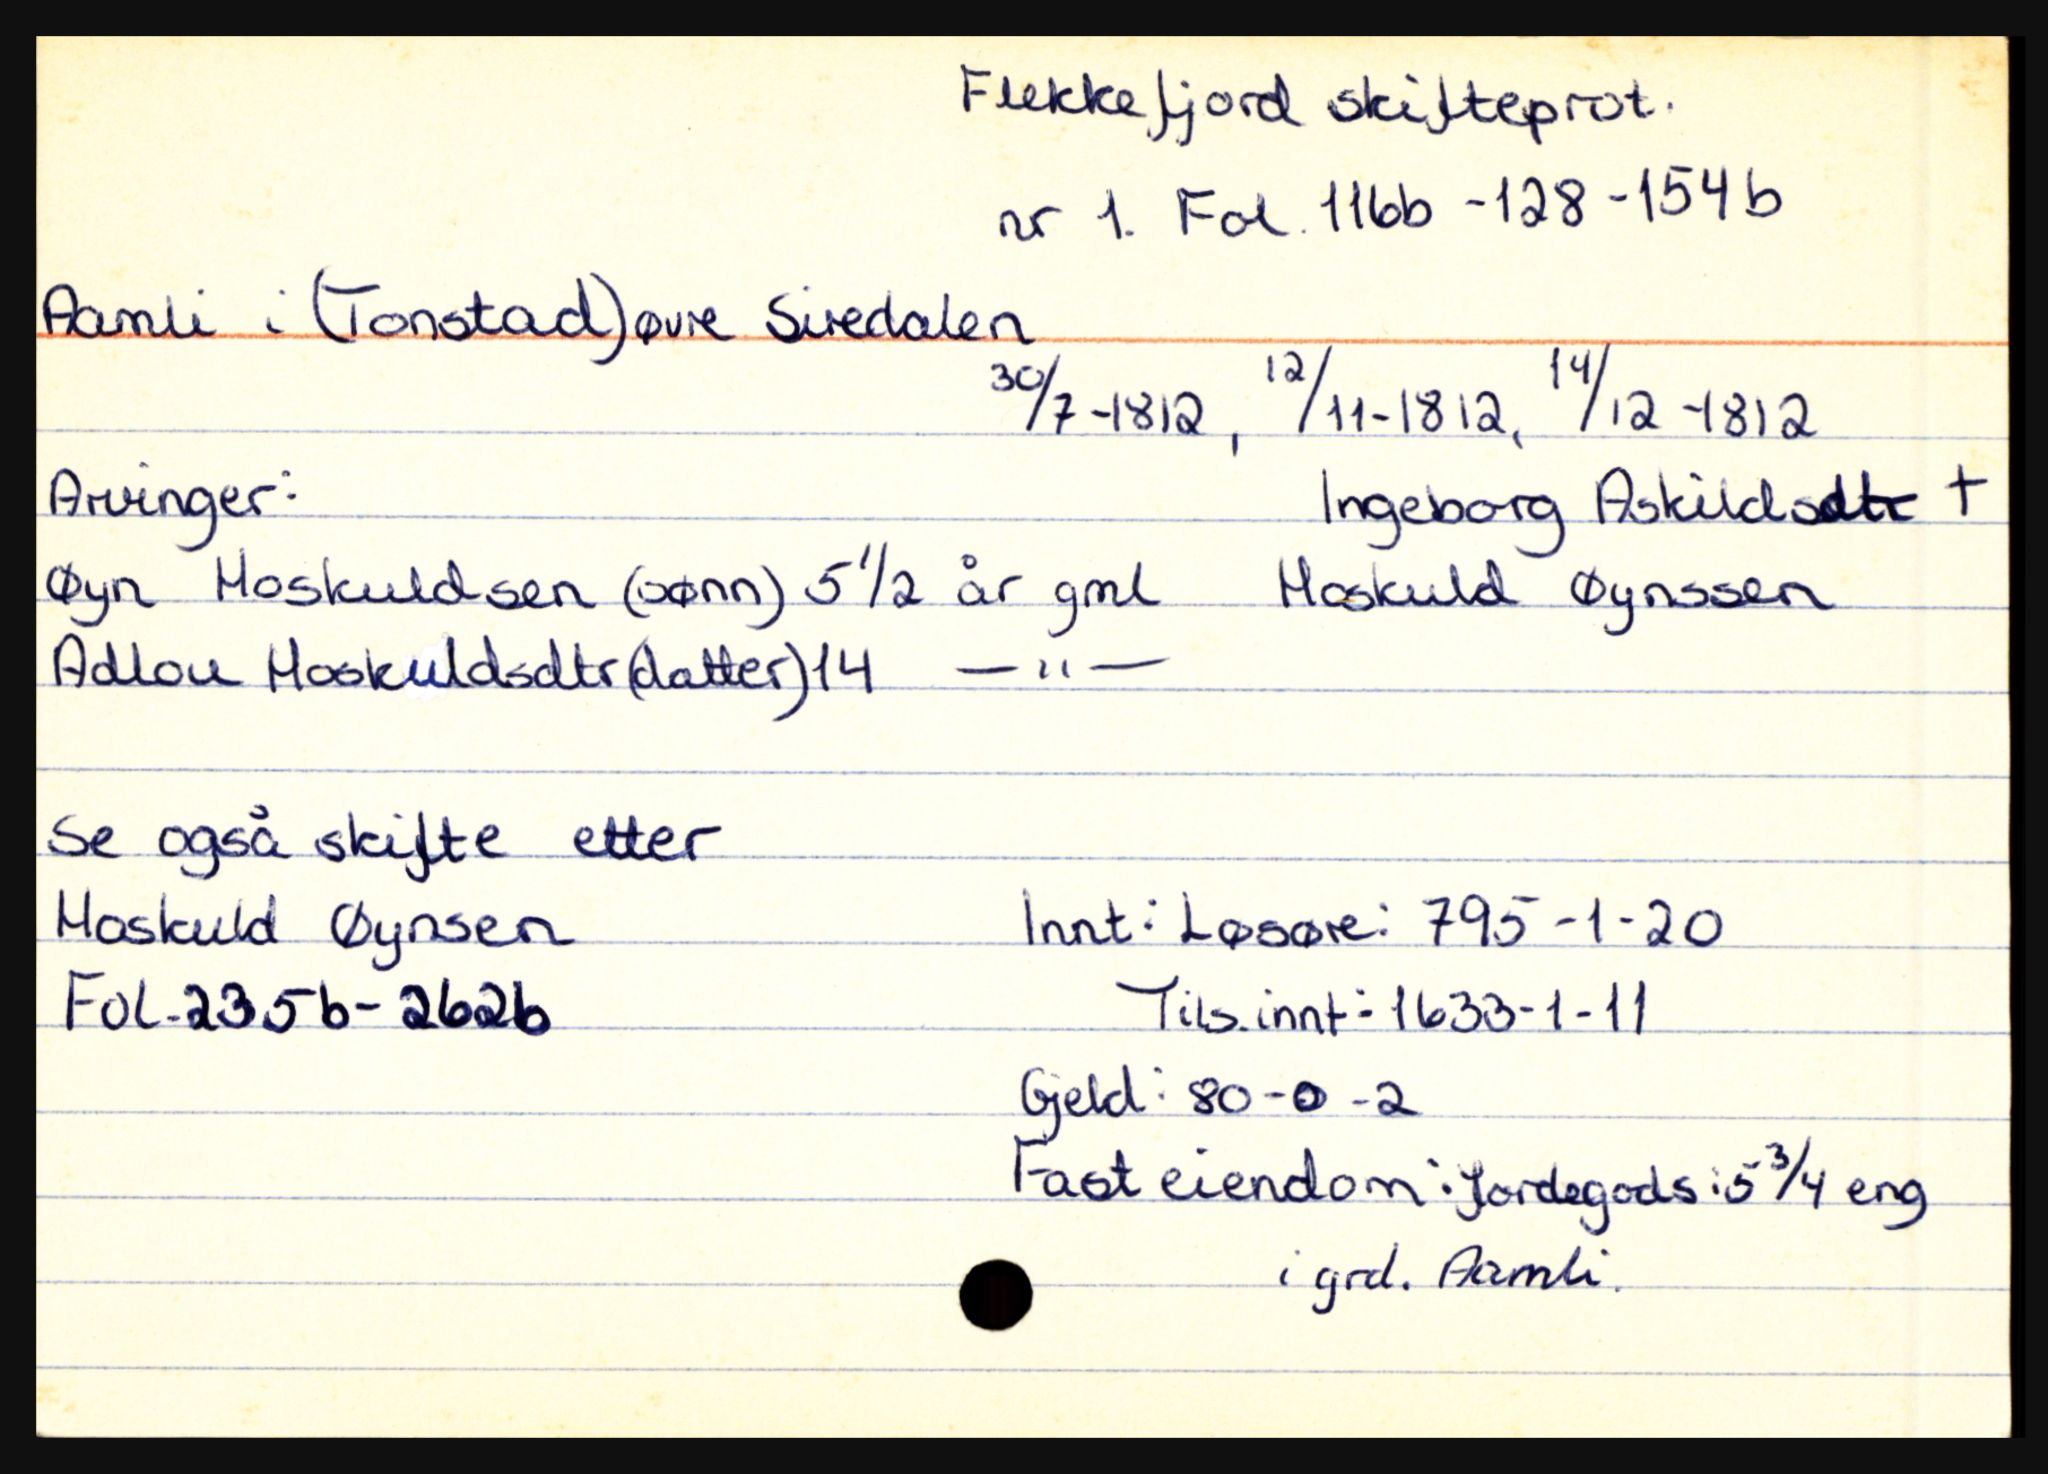 Flekkefjord skifteprot.
nr 1. Fol. 116b - 128 - 154b
Aamli i (Tonstad) øvre Siredalen
30/7 - 1812, 12/11 - 1812, 14/12 - 1812
Arvinger: Ingeborg Askildsdtr †
Øyn Hoskuldsen (sønn) 5 1/2 år gml Hoskuld Øynssen
Adlou Hoskuldsdtr (datter) 14 — " —
Se også skifte etter
Hoskuld Øynsen
Fol. 235b - 262b
Innt: Løsøre: 795 - 1 - 20
Tils. innt: 1633 - 1 - 11
Gjeld: 80 - 0 - 2
Fast eiendom: Jordegods: 5 3/4 eng
i grd. Aamli.